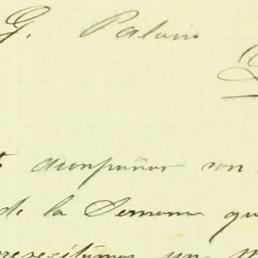 G. Palavic
acompañar son
de la Semana qu
necesitamos un m